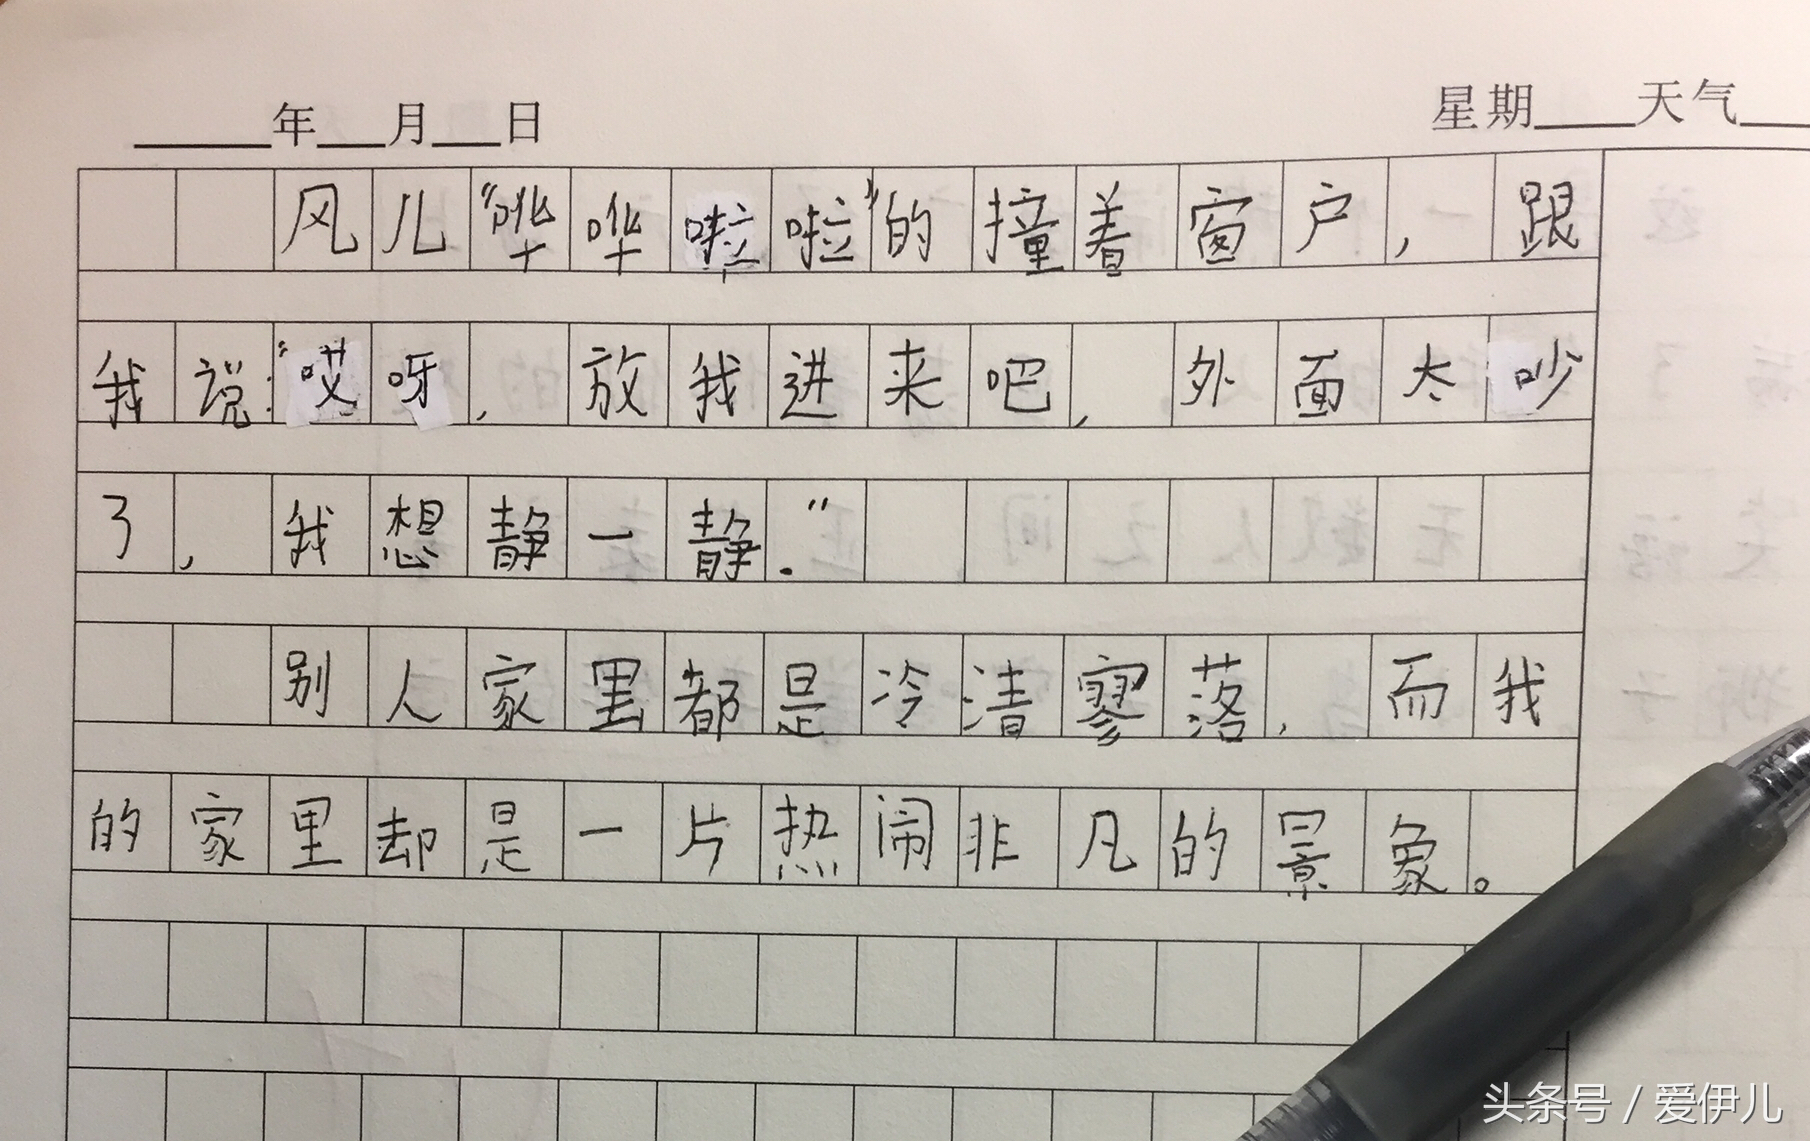 ____年__月__日 星期___天气__
风儿“哗哗啦啦”的撞着窗户，跟
我说：“哎呀，放我进来吧，外面太吵
了，我想静一静.”
别人家里都是冷清寥落，而我
的家里却是一片热闹非凡的景象。
头条号 / 爱伊儿